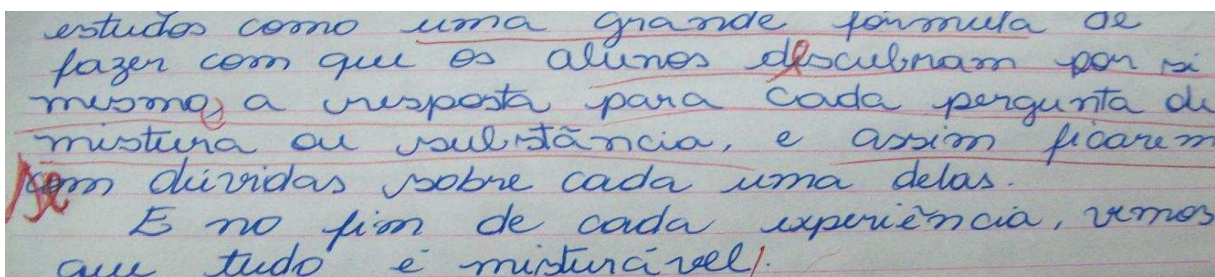 estudos como uma grande fórmula de
fazer com que os alunos descubram por si
mesmo, a resposta para cada pergunta de
mistura ou substância, e assim ficarem
sem dúvidas sobre cada uma delas.
E no fim de cada experiência, vemos
que tudo é misturável.